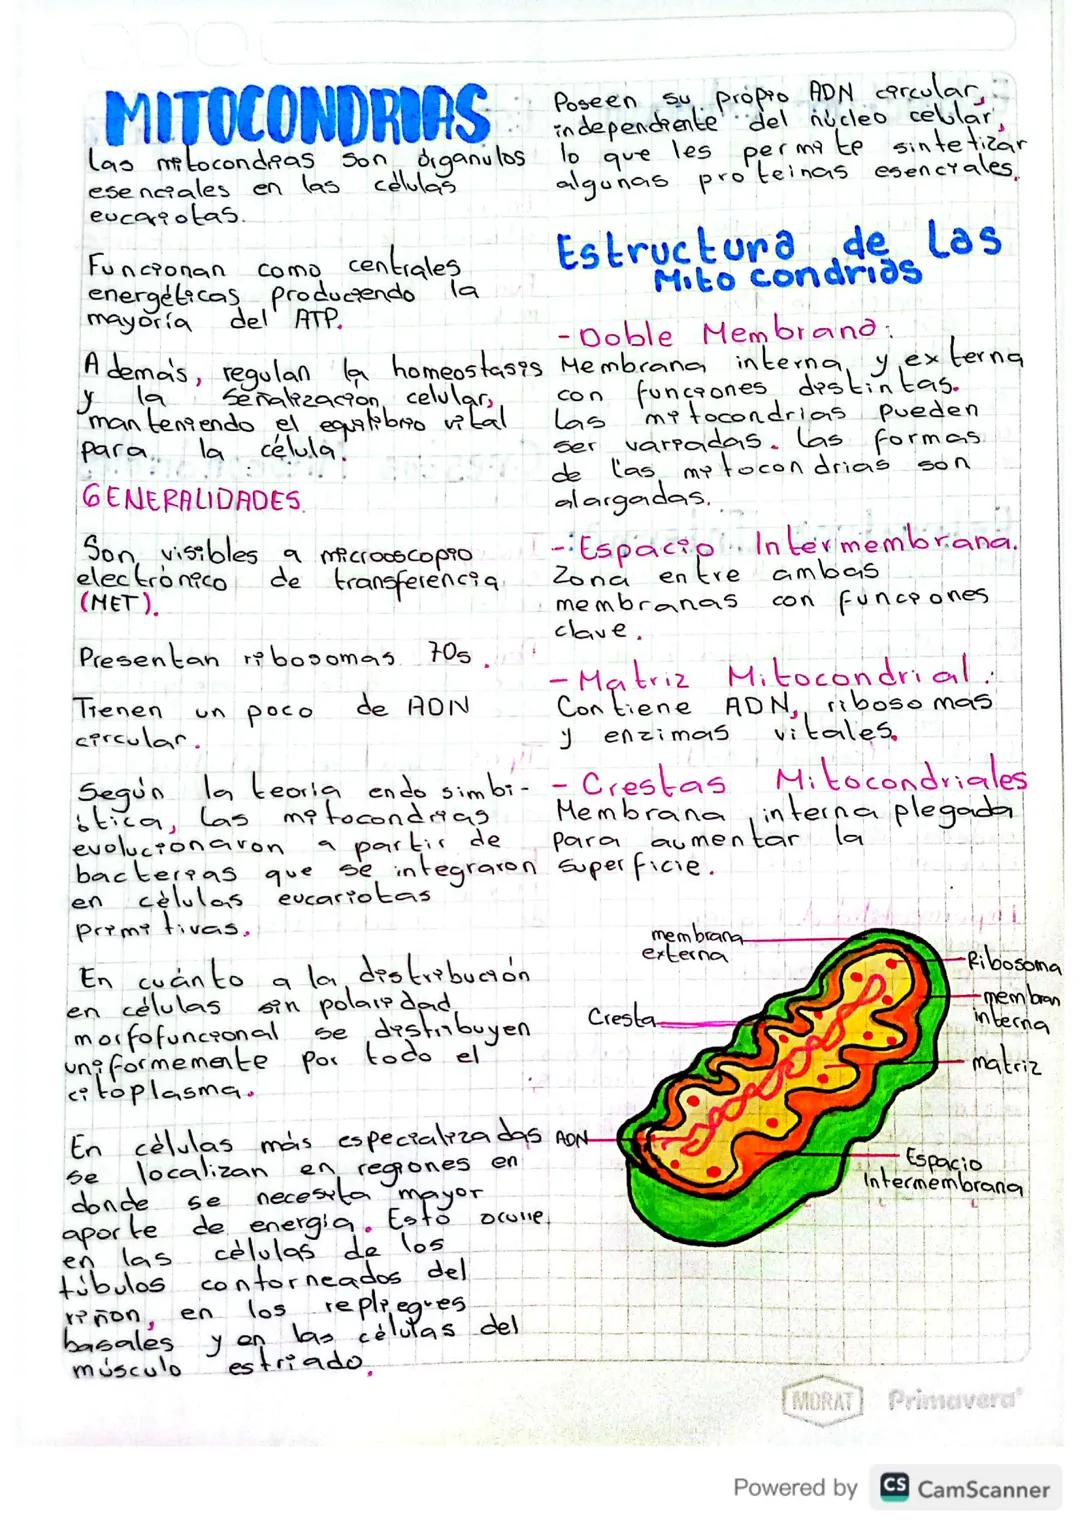 MITOCONDRIAS
Las mitocondrias son órganulos
esenciales en las células
eucariotas.
Funcionan como centrales
energéticas produciendo la
mayoría del ATP.
Además, regulan la homeostasis
y la señalización celular,
manteniendo el equilibrio vital
para la célula.
GENERALIDADES
Son visibles a microoscopio
electrónico de transferencia
(MET).
Presentan ribosomas 70s.
Tienen un poco de ADN
circular.
Según la teoria endosimbi-
ótica, las mitocondrias
evolucionaron a partir de
bacterias que se integraron
en células eucariotas
primitivas.
En cuánto a la distribución
en células sin polaridad
morfofuncional se distribuyen
uniformemente por todo el
citoplasma.
En células más especializadas
se localizan en regiones en
donde se necesita mayor
aporte de energia. Esto ocurre
en las células de los
túbulos contorneados del
riñon, en los repliegues
basales y en las células del
músculo estriado.
Poseen su própio ADN circular,
independiente del núcleo celular,
lo que les permite sintetizar
algunas proteinas esenciales.
Estructura de las
Mitocondrias
- Doble Membrana:
Membrana interna y externa
con funciones distintas.
Las mitocondrias pueden
ser variadas. Las formas
de las mitocondrias son
alargadas.
- Espacio Intermembrana.
Zona entre ambas
membranas con funciones
clave.
- Matriz Mitocondrial:
Contiene ADN, ribosomas
y enzimas vitales.
- Crestas Mitocondriales
Membrana interna plegada
para aumentar la
superficie.
membrana
externa
Cresta
ADN
Ribosoma
membran
interna
matriz
Espacio
Intermembrana
MORAT Primavera
Powered by CS CamScanner